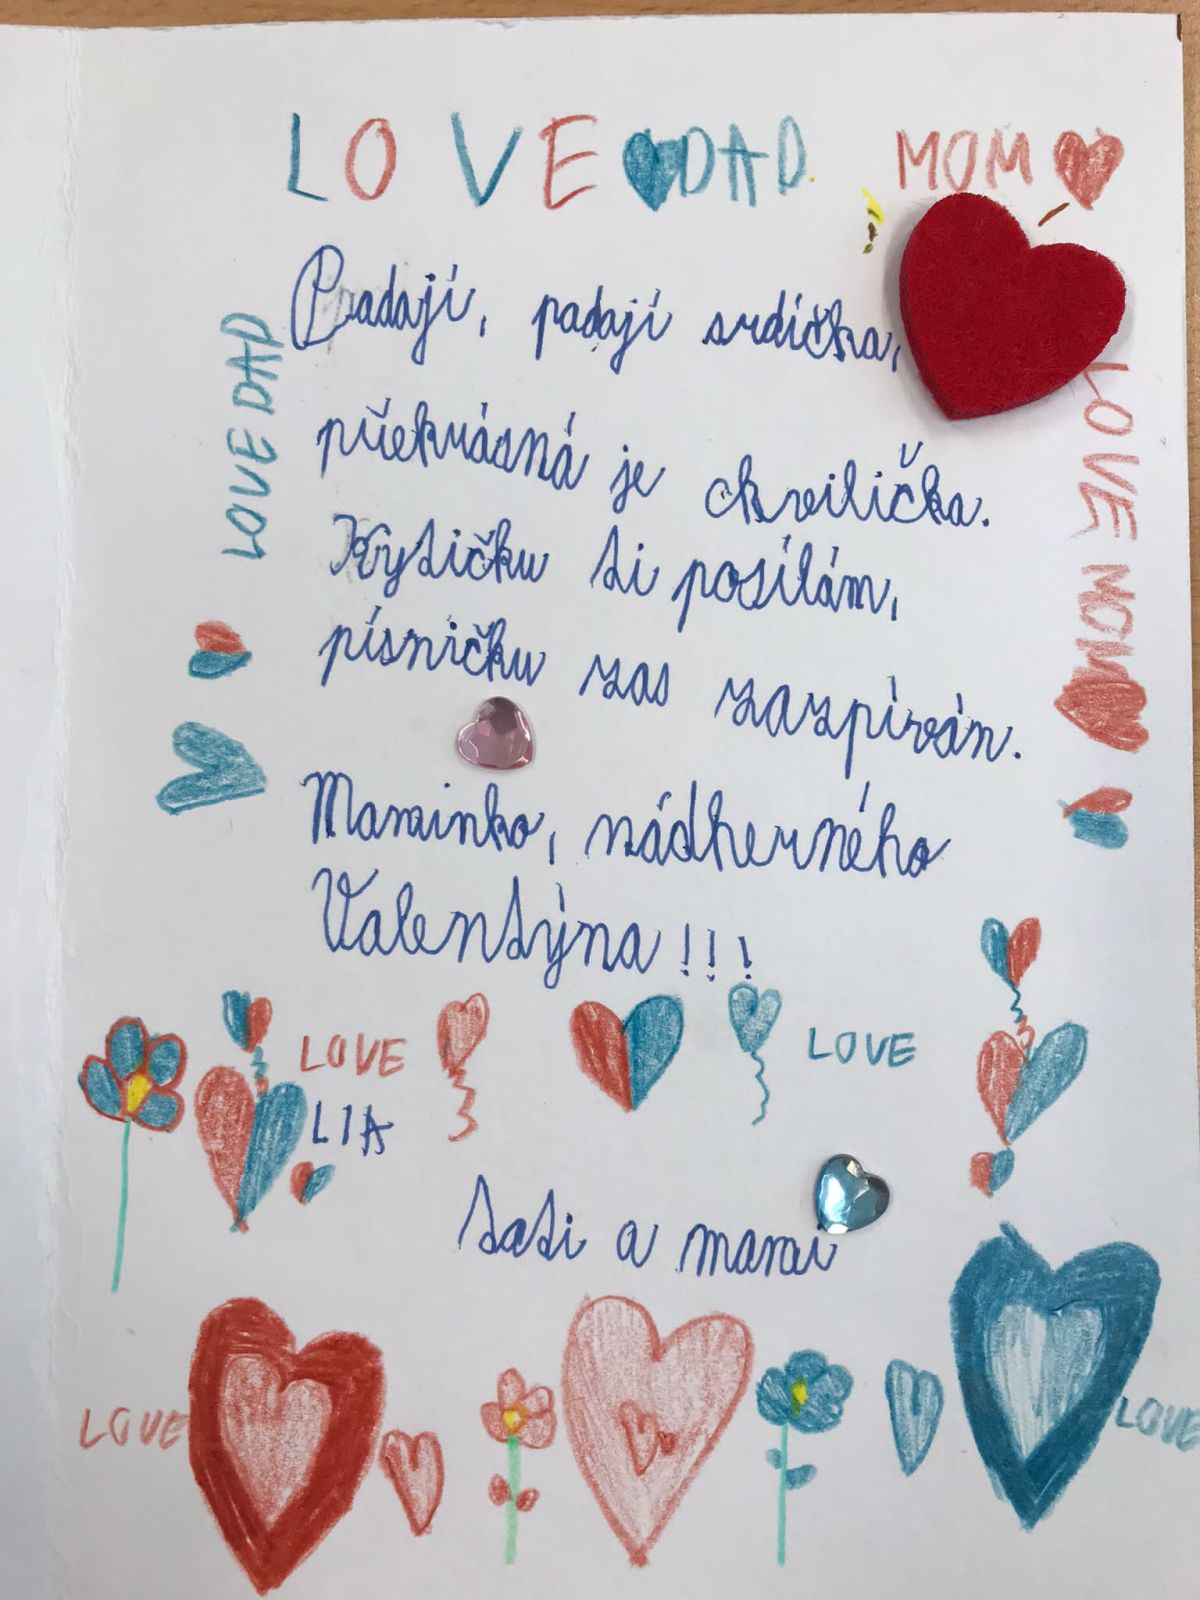 LOVE DAD MOM
LOVE DAD
Padají, padají srdíčka,
překrásná je chvilička.
Kytičku ti posílám,
písničku zas zazpívám.
LOVE MOM
Maminko, nádherného
Valentýna!!!
LOVE LOVE
LIA
tati a mami
LOVE LOVE